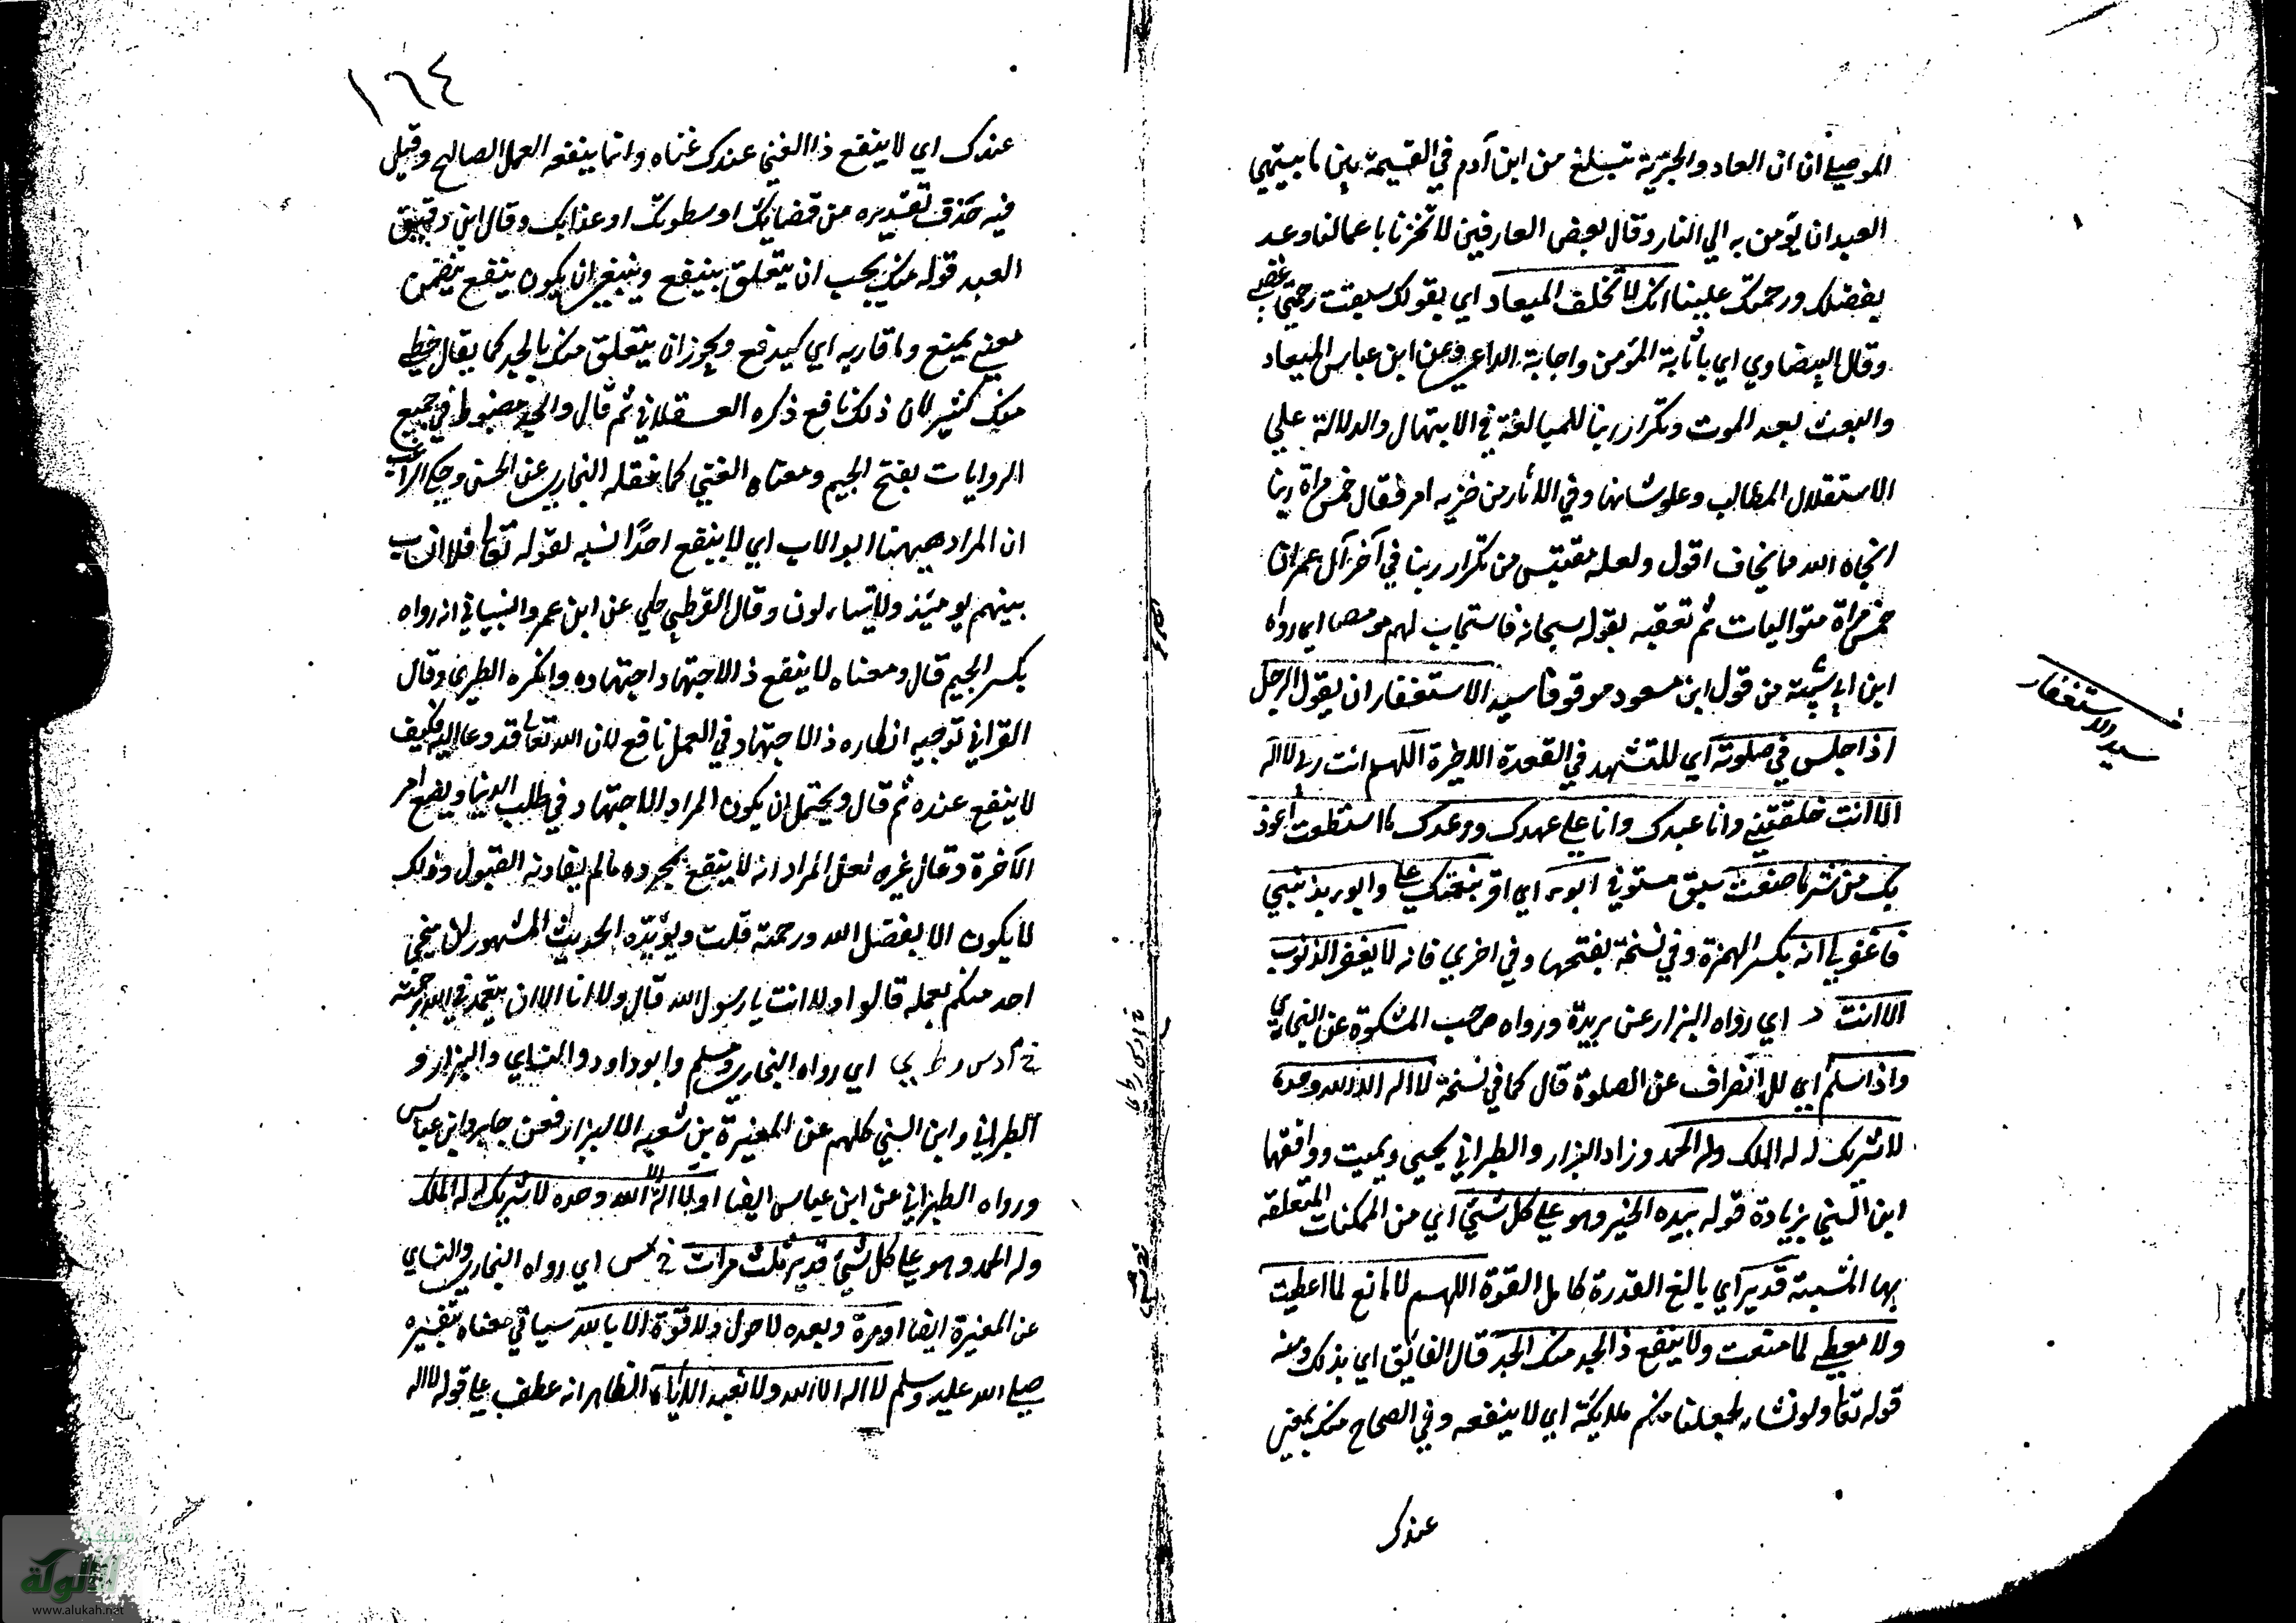 الموصلي ان ان العار والخزية تبلغ من ابن آدم في القيمة بين ما يتمني
العبد ان يؤمن به الي النار وقال بعض العارفين لا تخزنا باعمالنا وعد
بفضلك ورحمتك علينا انك لا تخلف الميعاد اي بقولك سبقت رحمتي غضبي
وقال البيضاوي اي باثابة المؤمن واجابة الداعي وعن ابن عباس الميعاد
والبعث بعد الموت وتكرار ربنا للمبالغة في الابتهال والدلالة علي
الاستقلال المطالب وعلو شانها وفي الاثار من حزبه امر فقال خمس مرة ربنا
انجاه الله مما يخاف اقول ولعله مقتبس من تكرار ربنا في آخر آل عمران
خمس مرة متواليات ثم تعقبه بقوله سبحانه فاستجاب لهم مو مص اي رواه
ابن ابي شيبة من قول ابن مسعود موقوفا سيد الاستغفار ان يقول الرجل
اذا جلس في صلوته اي للتشهد في القعدة الاخيرة اللهم انت ربي لا اله
الا انت خلقتني وانا عبدك وانا علي عهدك ووعدك ما استطعت اعوذ
بك من شر ما صنعت سبق مستوفي ابوء اي اقر بنعمتك علي وابوء بذنبي
فاغفر لي انه بكسر الهمزة وفي نسخة بفتحها وفي اخري فانه لا يغفر الذنوب
الا انت ر اي رواه البزار عن بريدة ورواه صاحب المشكوة عن البخاري
واذا سلم اي للانصراف عن الصلوة قال كما في نسخة لا اله الا الله وحده
لا شريك له له الملك وله الحمد وزاد البزار والطبراني يحيي ويميت ووافقها
ابن السني بزيادة قوله بيده الخير وهو علي كل شيئ اي من الممكنات المتعلقة
بها المشيئة قدير اي بالغ القدرة كامل القوة اللهم لا مانع لما اعطيت
ولا معطي لما منعت ولا ينفع ذا الجد منك الجد قال الفايق اي بذلك ومنه
قوله تعا ولو نشاء لجعلنا منكم ملايكة اي لا ينفعه وفي الصحاح منك بمعني
عندك
سيد الاستغفار
١٦٤
عندك اي لا ينفع ذا الغني عندك غناه وانما ينفعه العمل الصالح وقيل
فيه حذف تقديره من قضايك او سطوتك او عذابك وقال ابن دقيق
العبد قوله منك يجب ان يتعلق بينفع وينبغي ان يكون ينفع يتضمن
معني يمنع وما قاربه اي كيدفع ويجوز ان يتعلق منك بالجد كما يقال حظي
منك كثير لان ذلك نافع ذكره العسقلاني ثم قال والجد مضبوط في جميع
الروايات بفتح الجيم ومعناه الغني كما نقله البخاري عن الحسن وحكي الراغب
ان المراد ههنا ابو الاب اي لا ينفع احدا نسبه لقوله تعا فلا انساب
بينهم يومئذ ولا يتساءلون وقال القرطبي حكي عن ابن عمرو الشيباني انه رواه
بكسر الجيم قال ومعناه لا ينفع ذا الاجتهاد اجتهاده وانكره الطبري وقال
القزاني توجيه انكاره ذا الاجتهاد في العمل نافع لان الله تعا قد دعا اليه فكيف
لا ينفع عنده ثم قال ويحتمل ان يكون المراد الاجتهاد في طلب الدنيا ويضيع امر
الآخرة وقال غيره لعل المراد انه لا ينفع بمجرده مالم يقارنه القبول وذلك
لا يكون الا بفضل الله ورحمته قلت ويؤيده الحديث المشهور لن ينجي
احد منكم بعمله قالوا ولا انت يا رسول الله قال ولا انا الا ان يتغمدني الله برحمته
خ م د س ر ط ي اي رواه البخاري ومسلم وابو داود والنساي والبزار و
الطبراني وابن السني كلهم عن المغيرة بن شعبه الا البزار فعن جابر وابن عباس
ورواه الطبراني عن ابن عباس ايضا او لا اله الا الله وحده لا شريك له له الملك
وله الحمد وهو علي كل شيئ قدير ثلث مرات خ س اي رواه البخاري والنساي
عن المغيرة ايضا او مرة وبعده لا حول ولا قوة الا بالله سياتي معناه بتفسيره
صلي الله عليه وسلم لا اله الا الله ولا نعبد الا اياه الظاهر انه عطف علي قوله لا اله
www.alukah.net